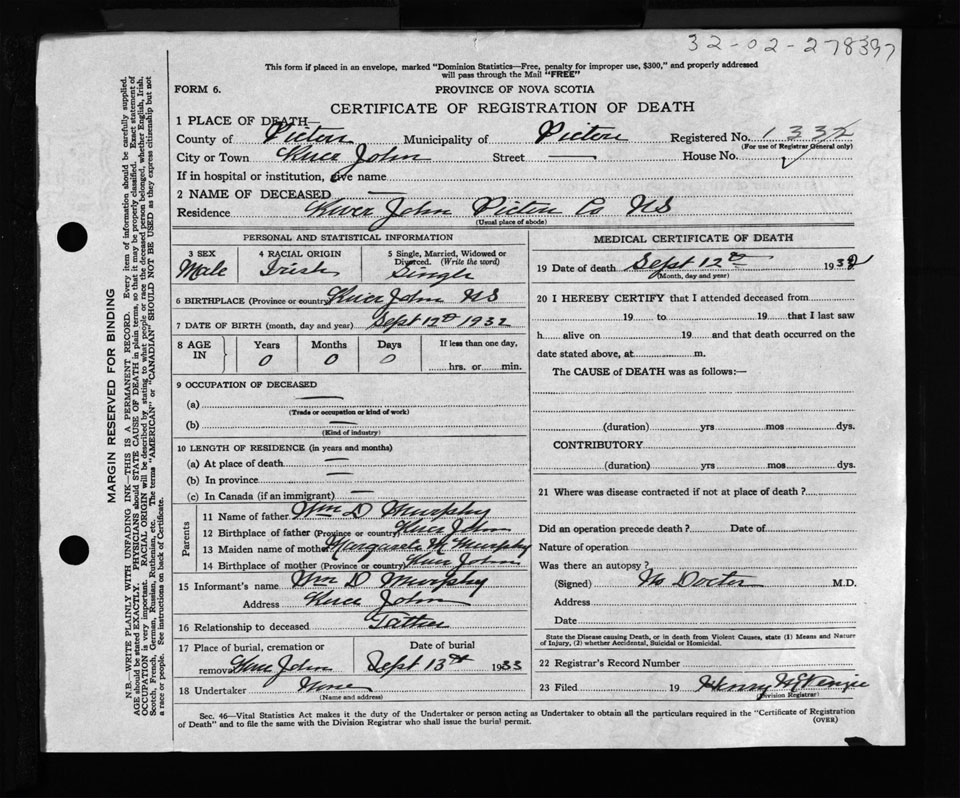 32-02-278397
This form if placed in an envelope, marked "Dominion Statistics—Free, penalty for improper use, $300," and properly addressed
will pass through the Mail "FREE"
FORM 6.
PROVINCE OF NOVA SCOTIA
CERTIFICATE OF REGISTRATION OF DEATH
1 PLACE OF DEATH—
County of Pictou Municipality of Pictou Registered No. 1332
(For use of Registrar General only)
City or Town River John Street — House No. ✓
If in hospital or institution, give name
2 NAME OF DECEASED —
Residence River John Pictou Co NS
(Usual place of abode)
PERSONAL AND STATISTICAL INFORMATION
3 SEX 4 RACIAL ORIGIN 5 Single, Married, Widowed or
Divorced. (Write the word)
Male Irish Single
6 BIRTHPLACE (Province or country) River John NS
7 DATE OF BIRTH (month, day and year) Sept 12th 1932
8 AGE IN Years Months Days If less than one day,
0 0 0 hrs. or min.
9 OCCUPATION OF DECEASED
(a) —
(Trade or occupation or kind of work)
(b) —
(Kind of industry)
10 LENGTH OF RESIDENCE (in years and months)
(a) At place of death —
(b) In province —
(c) In Canada (if an immigrant) —
Parents
11 Name of father Wm D Murphy
12 Birthplace of father (Province or country) River John
13 Maiden name of mother Margaret M Murphy
14 Birthplace of mother (Province or country) River John
15 Informant's name Wm D Murphy
Address River John
16 Relationship to deceased Father
17 Place of burial, cremation or
removal River John
Date of burial
Sept 13th 1933
18 Undertaker None
(Name and address)
MEDICAL CERTIFICATE OF DEATH
19 Date of death Sept 12th 1932
(Month, day and year)
20 I HEREBY CERTIFY that I attended deceased from
19 to 19 that I last saw
h alive on 19 and that death occurred on the
date stated above, at m.
The CAUSE of DEATH was as follows:—
(duration) yrs mos dys.
CONTRIBUTORY
(duration) yrs mos dys.
21 Where was disease contracted if not at place of death?
Did an operation precede death? Date of
Nature of operation
Was there an autopsy?
(Signed) No Doctor M.D.
Address
Date
State the Disease causing Death, or in death from Violent Causes, state (1) Means and Nature
of Injury, (2) whether Accidental, Suicidal or Homicidal.
22 Registrar's Record Number
23 Filed 19 Henry McKenzie
(Division Registrar)
Sec. 46—Vital Statistics Act makes it the duty of the Undertaker or person acting as Undertaker to obtain all the particulars required in the "Certificate of Registration
of Death" and to file the same with the Division Registrar who shall issue the burial permit.
(OVER)
MARGIN RESERVED FOR BINDING
N.B.—WRITE PLAINLY WITH UNFADING INK—THIS IS A PERMANENT RECORD. Every item of information should be carefully supplied.
AGE should be stated EXACTLY. PHYSICIANS should STATE CAUSE OF DEATH in plain terms, so that it may be properly classified. Exact statement of
OCCUPATION is very important. RACIAL ORIGIN will be described by stating to what people or race the deceased person belonged, whether English, Irish,
Scotch, French, German, Russian, Ruthenian, etc. The terms "AMERICAN" or "CANADIAN" SHOULD NOT BE USED as they express citizenship but not
a race or people. See instructions on back of Certificate.